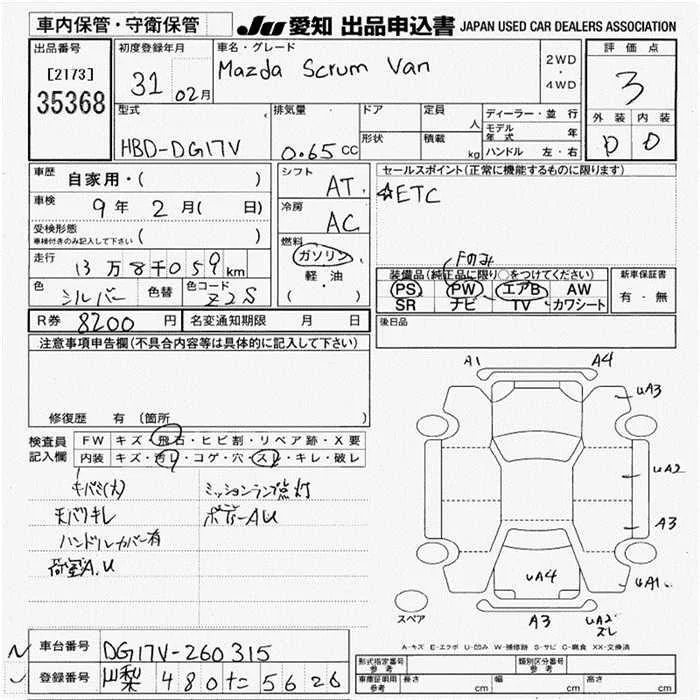 車内保管・守衛保管 JU 愛知 出品申込書 JAPAN USED CAR DEALERS ASSOCIATION
出品番号 初度登録年月 車名・グレード 評価点
[2173] 31 02月 Mazda Scrum Van 2WD・4WD 3
35368
型式 排気量 ドア 定員 人 ディーラー・並行 外装 内装
HBD-DG17V 0.65 CC 形状 積載 kg モデル年式 年 D D
ハンドル 左・右
車歴 自家用・( ) シフト AT セールスポイント(正常に機能するものに限ります)
車検 9年 2月( 日) 冷房 AC ☆ETC
受検形態 ( )
車検付きのみ記入して下さい
燃料 ガソリン 軽・油 ( ・ )
Fのみ
走行 13万8千059km 装備品(純正品に限り○をつけてください) 新車保証書
色 シルバー 色替 色コード Z2S PS PW エアB AW 有・無
SR ナビ TV カワシート
R券 8200 円 名変通知期限 月 日 後日品
注意事項申告欄(不具合内容等は具体的に記入して下さい)
修復歴 有 (箇所 )
検査員記入欄 FW キズ・飛石・ヒビ割・リペア跡・X要
内装 キズ・汚レ・コゲ・穴・スレ・キレ・破レ
キバミ(大) ミッションランプ点灯
モバリキレ ボデーAU
ハンドルカバー有
荷室A.U
A1 A4
UA3
UA2
A3
UA4 UA1
A3 UA2 ズレ
スペア
A-キズ E-エクボ U-凹み W-補修跡 S-サビ C-腐食 XX-交換済
車台番号 DG17V-260315 形式指定番号 参考 類別区分番号 参考
登録番号 山梨 480 た 5626 車庫証明用 参考 長さ cm 幅 cm 高さ cm